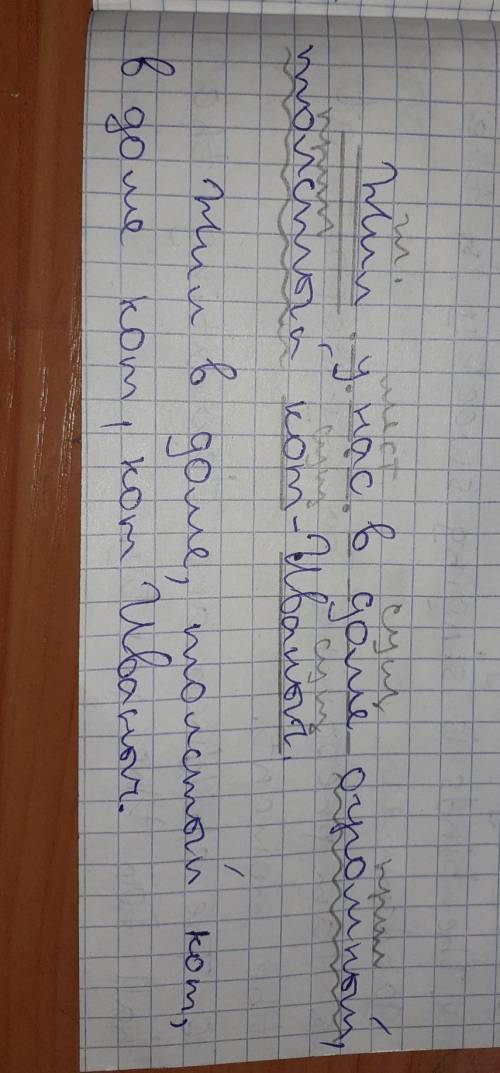 гл. мест сущ прил
Жил у нас в доме огромный,
прил сущ сущ
толстый кот-Иваныч.
Жил в доме, толстый кот,
в доме кот, кот Иваныч.